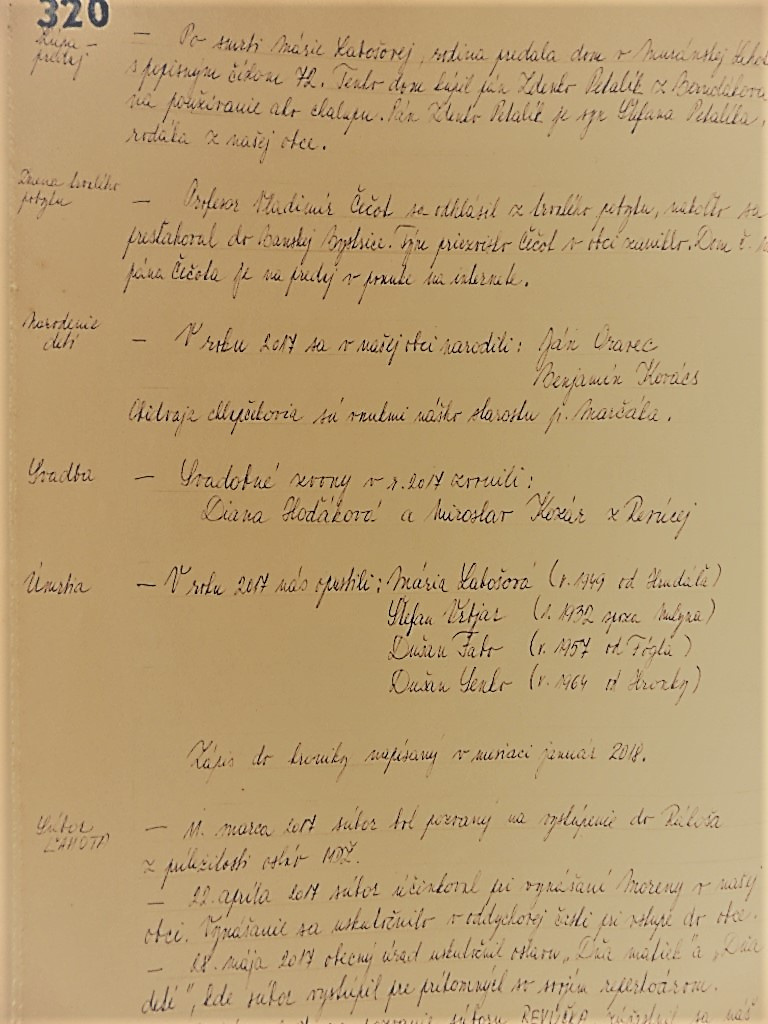 320
Kúpa –
predaj
— Po smrti Márie Labošovej, rodina predala dom v Muránskej Lehote
s popisným číslom 72. Tento dom kúpil pán Zdenko Petalík z
na používanie ako chalupu. Pán Zdenko Petalík je syn Štefana Petalíka,
rodáka z našej obce.
Zmena trvalého
pobytu
— Profesor Vladimír Čečot sa odhlásil z trvalého pobytu, nakoľko sa
presťahoval do Banskej Bystrice. Tým priezvisko Čečot v obci zaniklo. Dom č.
pána Čečota je na predaj v ponuke na internete.
Narodenie
detí
— V roku 2017 sa v našej obci narodili: Ján Oravec
Benjamín Kovács
Obidvaja chlapčekovia sú vnukmi nášho starostu p. Marčáka.
Svadba
— Svadobné zvony v r. 2017 zvonili:
Diana Hoďáková a Miroslav Kozár z Revúcej
Úmrtia
— V roku 2017 nás opustili: Mária Labošová (r. 1949 od
Štefan Vrbjar (r. 1932 spoza mlyna)
Dušan Fabo (r. 1957 od Fógla)
Dušan Senko (r. 1964 od
Zápis do kroniky napísaný v mesiaci január 2018.
Súbor
LEHOTA
— 11. marca 2017 súbor bol pozvaný na vystúpenie do Rákoša
z príležitosti osláv MDŽ.
— 22. apríla 2017 súbor účinkoval pri vynášaní Moreny v našej
obci. Vynášanie sa uskutočnilo v oddychovej časti pri vstupe do obce.
— 28. mája 2017 obecný úrad uskutočnil oslavu „Dňa matiek" a „Dňa
detí", kde súbor vystúpil pre prítomných so svojím repertoárom.
pozvanie súboru REVÚČKA sa náš